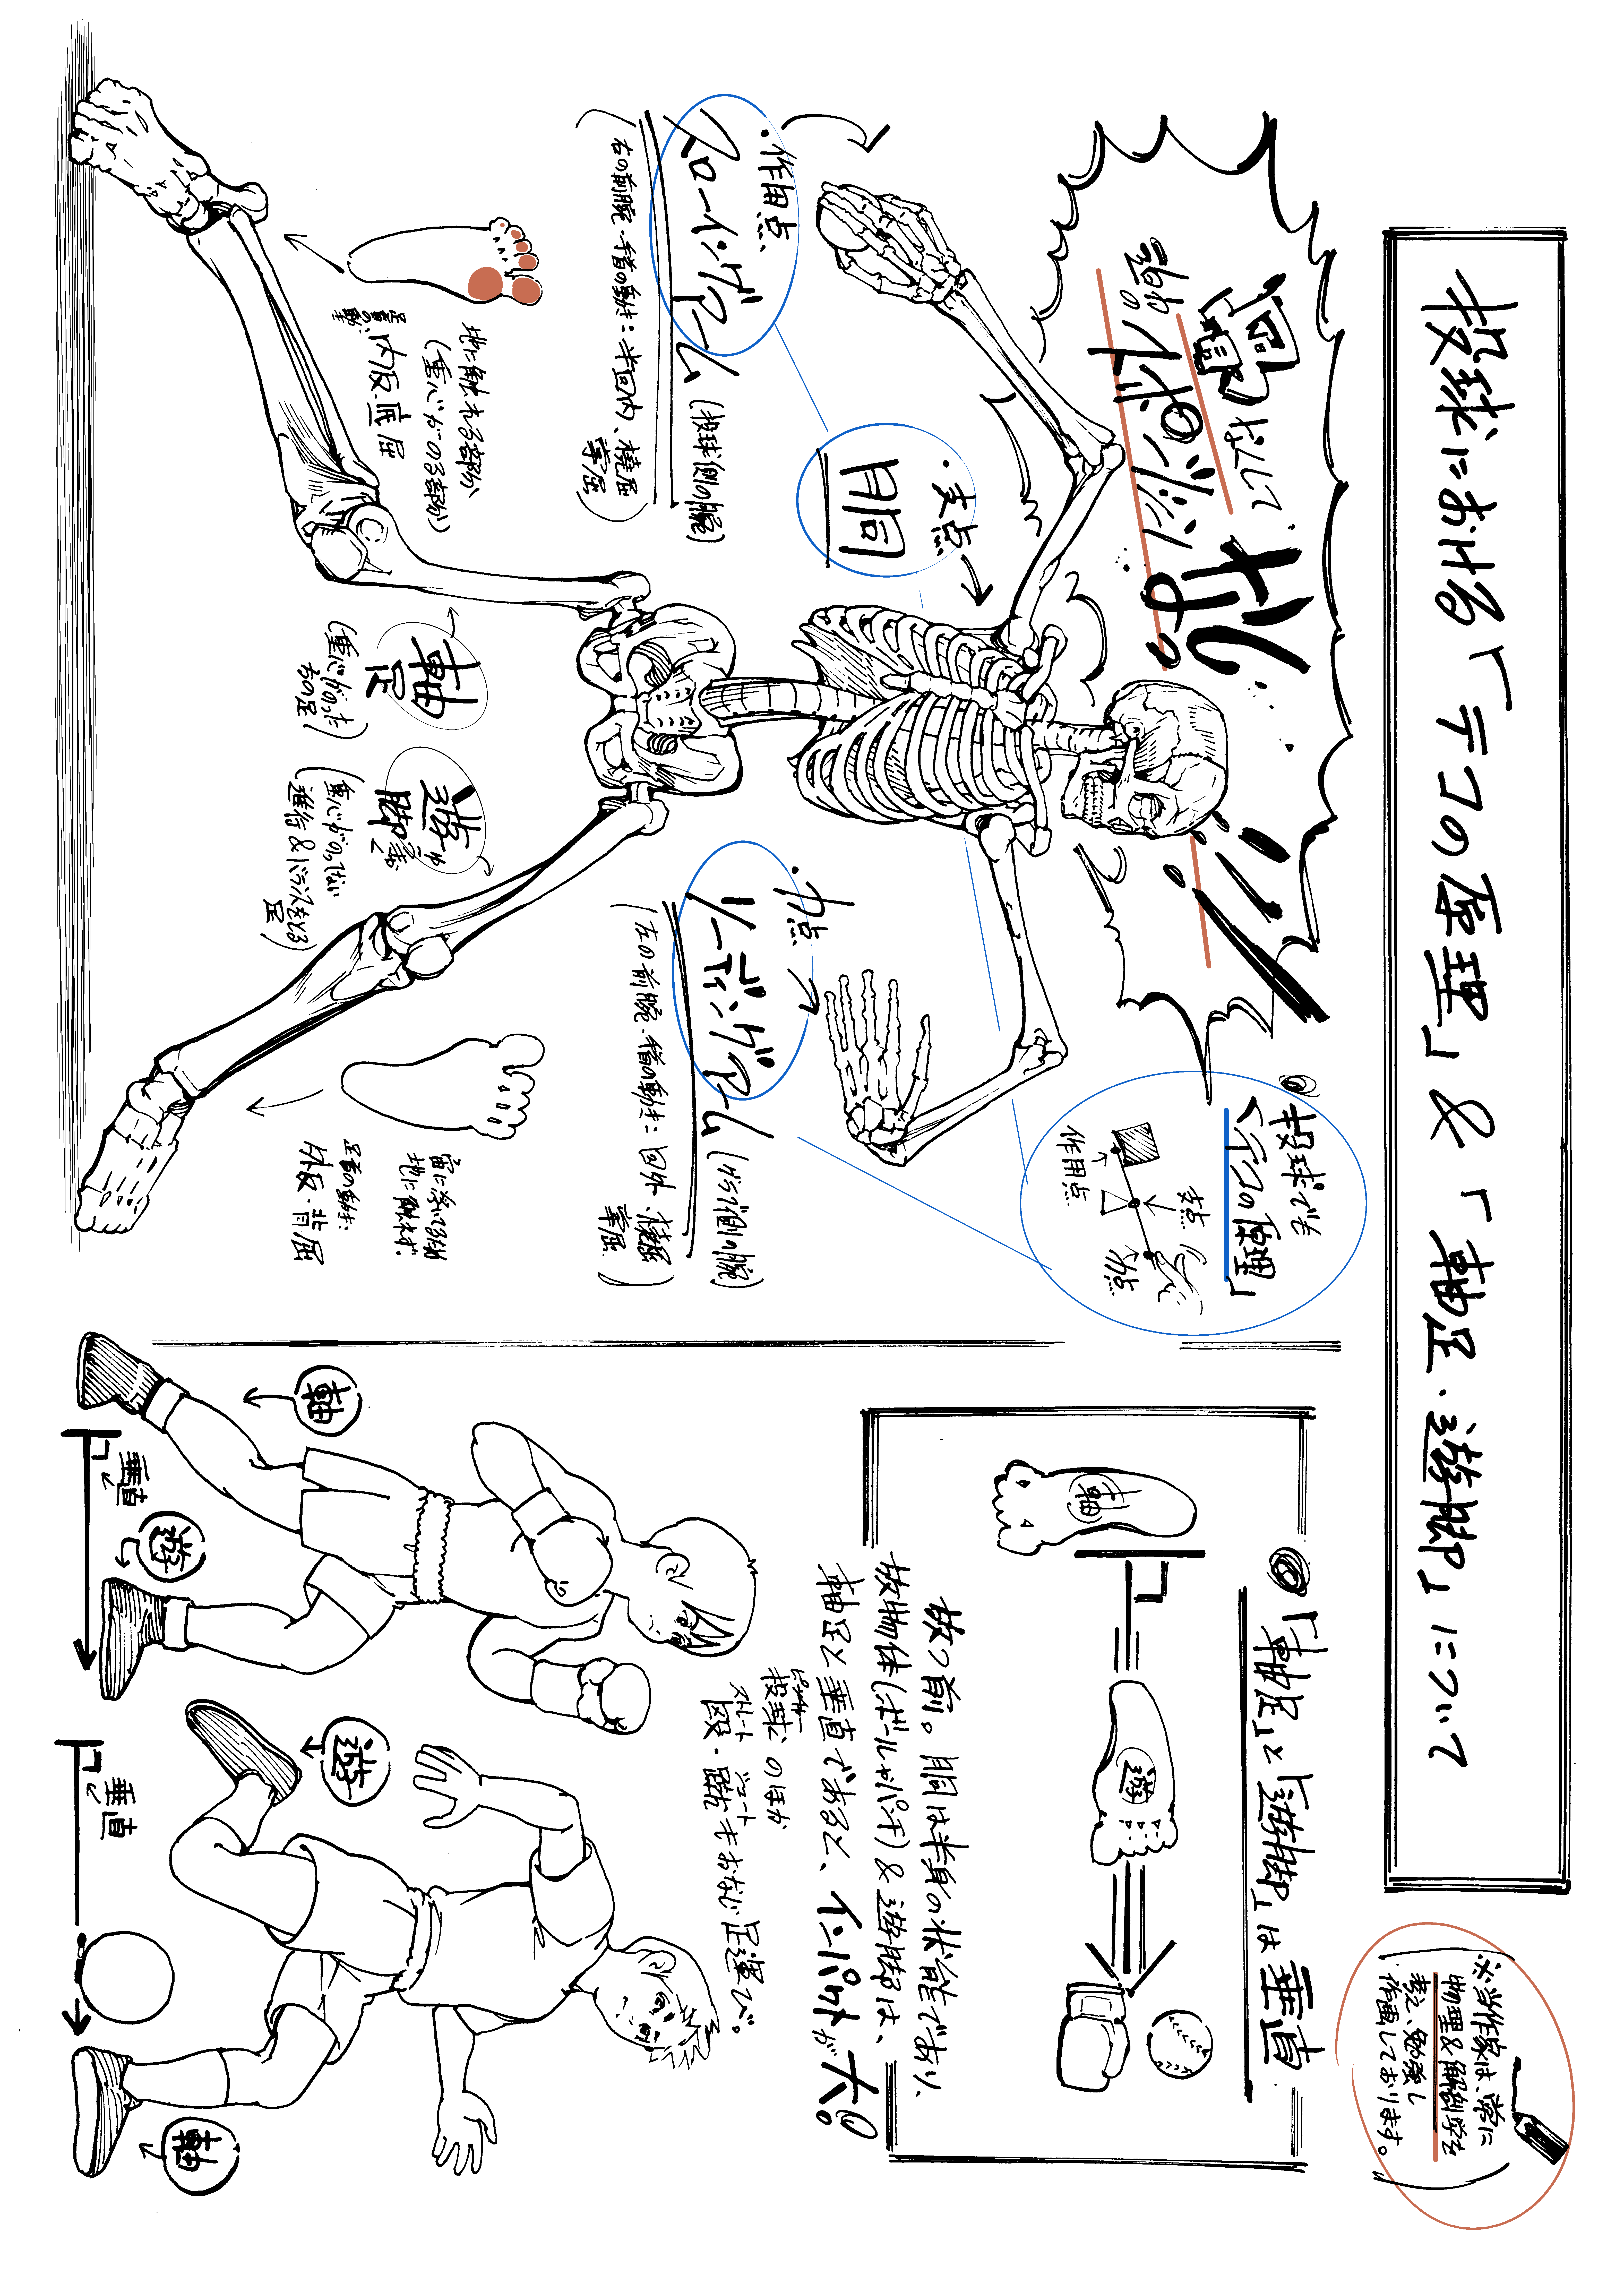 投球における「テコの原理」&「軸足・遊脚」について
※当作家は、常に
物理&解剖学を
考え、勉強し
作画しております。
そして
謎の
イポンジャ
投球でも
「テコの原理」
支点
作用点
力点
・作用点
スローイングアーム
(投球側の腕)
(右の前腕・手首の動き:半回内、橈屈
掌屈)
・支点
胴
・力点
リーディングアーム
(グラブ側の腕)
(左の前腕・手首の動き:回外、橈屈
掌屈)
地に触れる部分
(重心がのる部分)
足首の動き
内反・底屈
軸足
(重心がのった
右の足)
遊脚
(重心がのってない
進行&バランスをとる
足)
宙に浮いてるため
地に触れず。
足首の動き:
外反・背屈
◎「軸足」と「遊脚」は垂直
軸
遊
放つ前。胴は半身の状態であり、
放物体(ボールやパンチ)&遊脚は、
軸足と垂直であると、インパクトが大。
投球のほか
ストレート
シュート
殴・蹴もおなじ足運び。
軸
垂直
遊
遊
垂直
軸